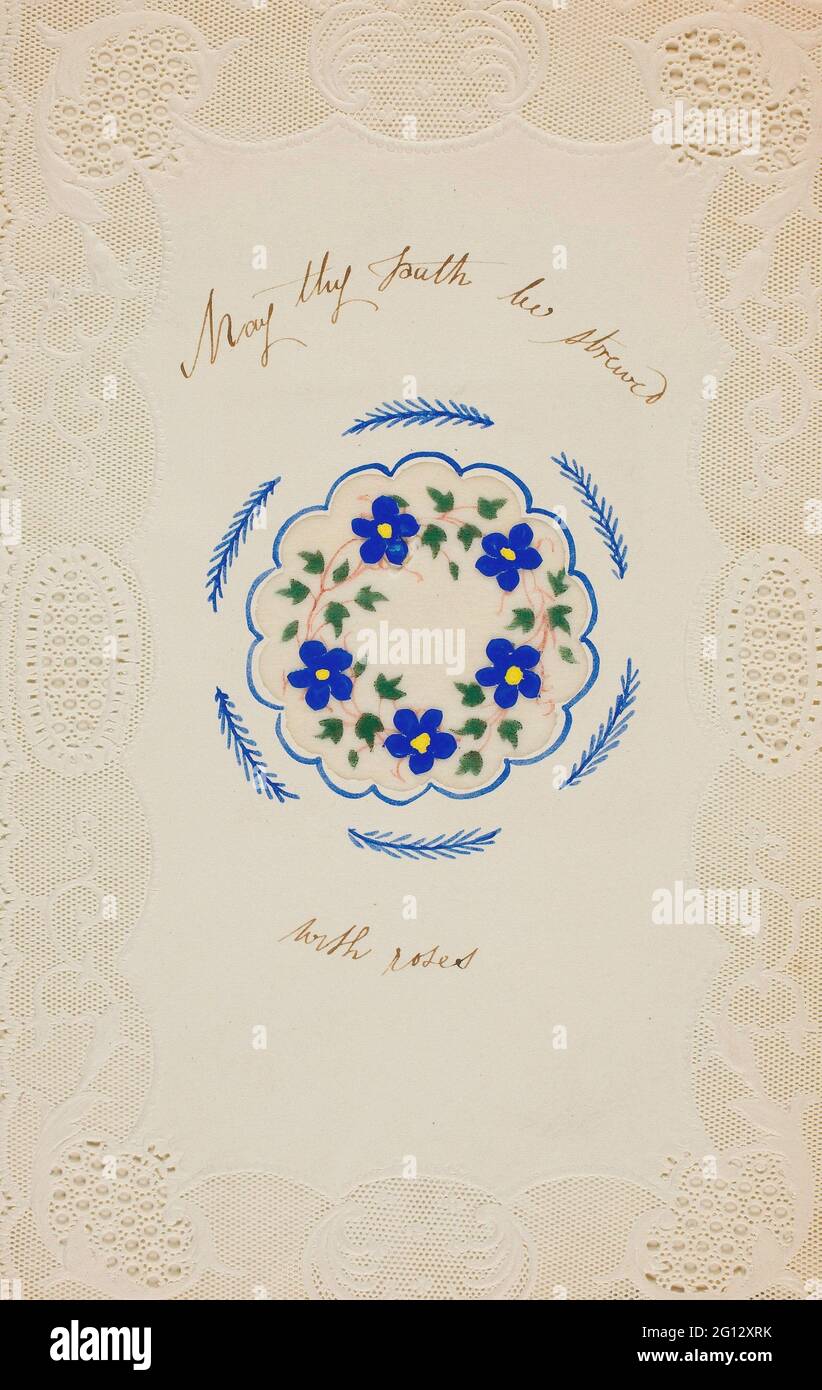 May thy path be strewed
with roses
alamy
alamy
alamy
alamy
Image ID: 2G12XRK
www.alamy.com